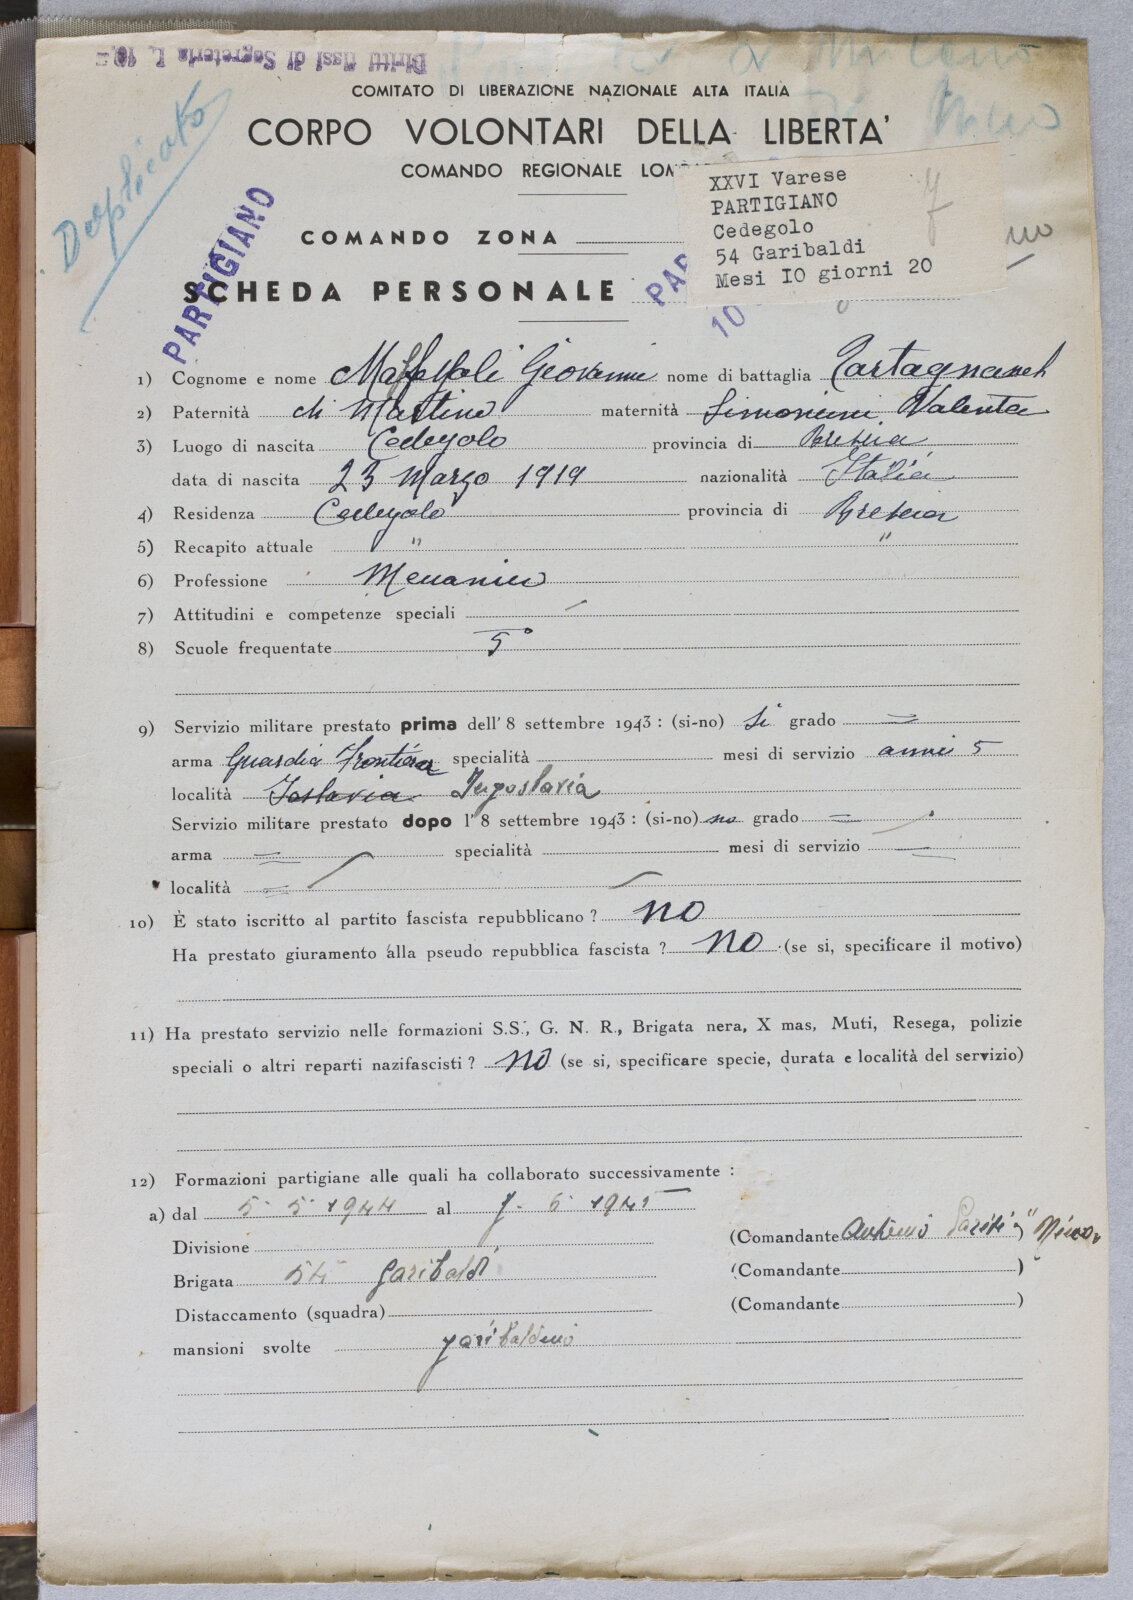 Diritti fissi di Segreteria L. 10,=
Duplicato
COMITATO DI LIBERAZIONE NAZIONALE ALTA ITALIA
CORPO VOLONTARI DELLA LIBERTA'
COMANDO REGIONALE LOM
XXVI Varese
PARTIGIANO
Cedegolo
54 Garibaldi
Mesi IO giorni 20
PARTIGIANO
COMANDO ZONA
PAR
SCHEDA PERSONALE
10
1) Cognome e nome Giovanni nome di battaglia
2) Paternità di Martino maternità Simoncini Valenta
3) Luogo di nascita Cedegolo provincia di Brescia
data di nascita 23 Marzo 1919 nazionalità Italia
4) Residenza Cedegolo provincia di Brescia
5) Recapito attuale " "
6) Professione Meccanico
7) Attitudini e competenze speciali
8) Scuole frequentate 5°
9) Servizio militare prestato prima dell' 8 settembre 1943 : (si-no) si grado =
arma Guardia Frontiera specialità mesi di servizio anni 5
località Joslavia Jugoslavia
Servizio militare prestato dopo l' 8 settembre 1943 : (si-no) no grado =
arma = specialità mesi di servizio =
località =
10) È stato iscritto al partito fascista repubblicano ? NO
Ha prestato giuramento alla pseudo repubblica fascista ? NO (se si, specificare il motivo)
11) Ha prestato servizio nelle formazioni S.S., G. N. R., Brigata nera, X mas, Muti, Resega, polizie
speciali o altri reparti nazifascisti ? NO (se si, specificare specie, durata e località del servizio)
12) Formazioni partigiane alle quali ha collaborato successivamente :
a) dal 5 5 1944 al 1945
Divisione (Comandante Antonio "Nino")
Brigata 54 Garibaldi (Comandante )
Distaccamento (squadra) (Comandante )
mansioni svolte garibaldino